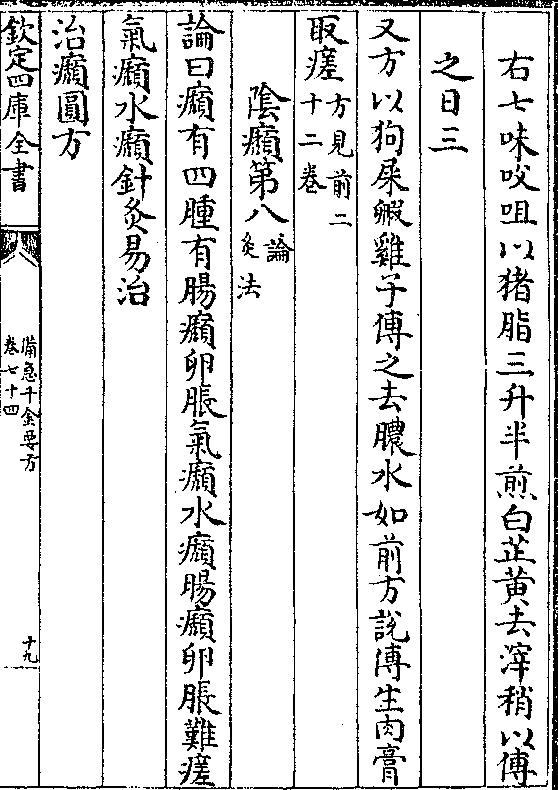 右七味㕮咀以猪脂三升半煎白芷黄去滓稍以傅
之日三
又方以狗屎豭雞子傅之去膿水如前方說傅生肉膏
取瘥方見前二十二卷
陰㿗第八論灸法
論曰㿗有四腫有腸㿗卵脹氣㿗水㿗腸㿗卵脹難瘥
氣㿗水㿗針灸易治
治㿗圓方
欽定四庫全書
備急千金要方
卷七十四
十九